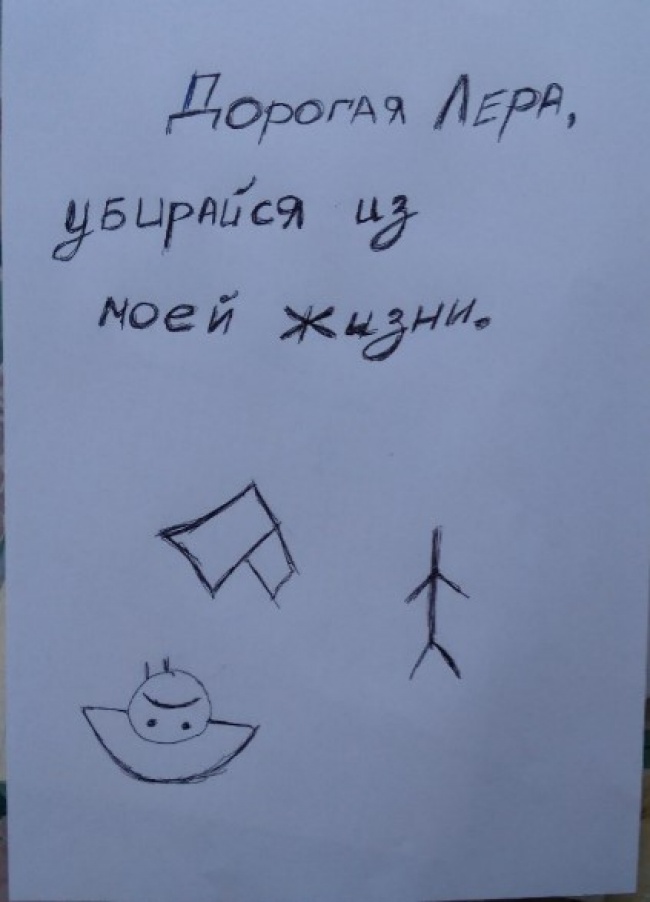 Дорогая Лера,
убирайся из
моей жизни.